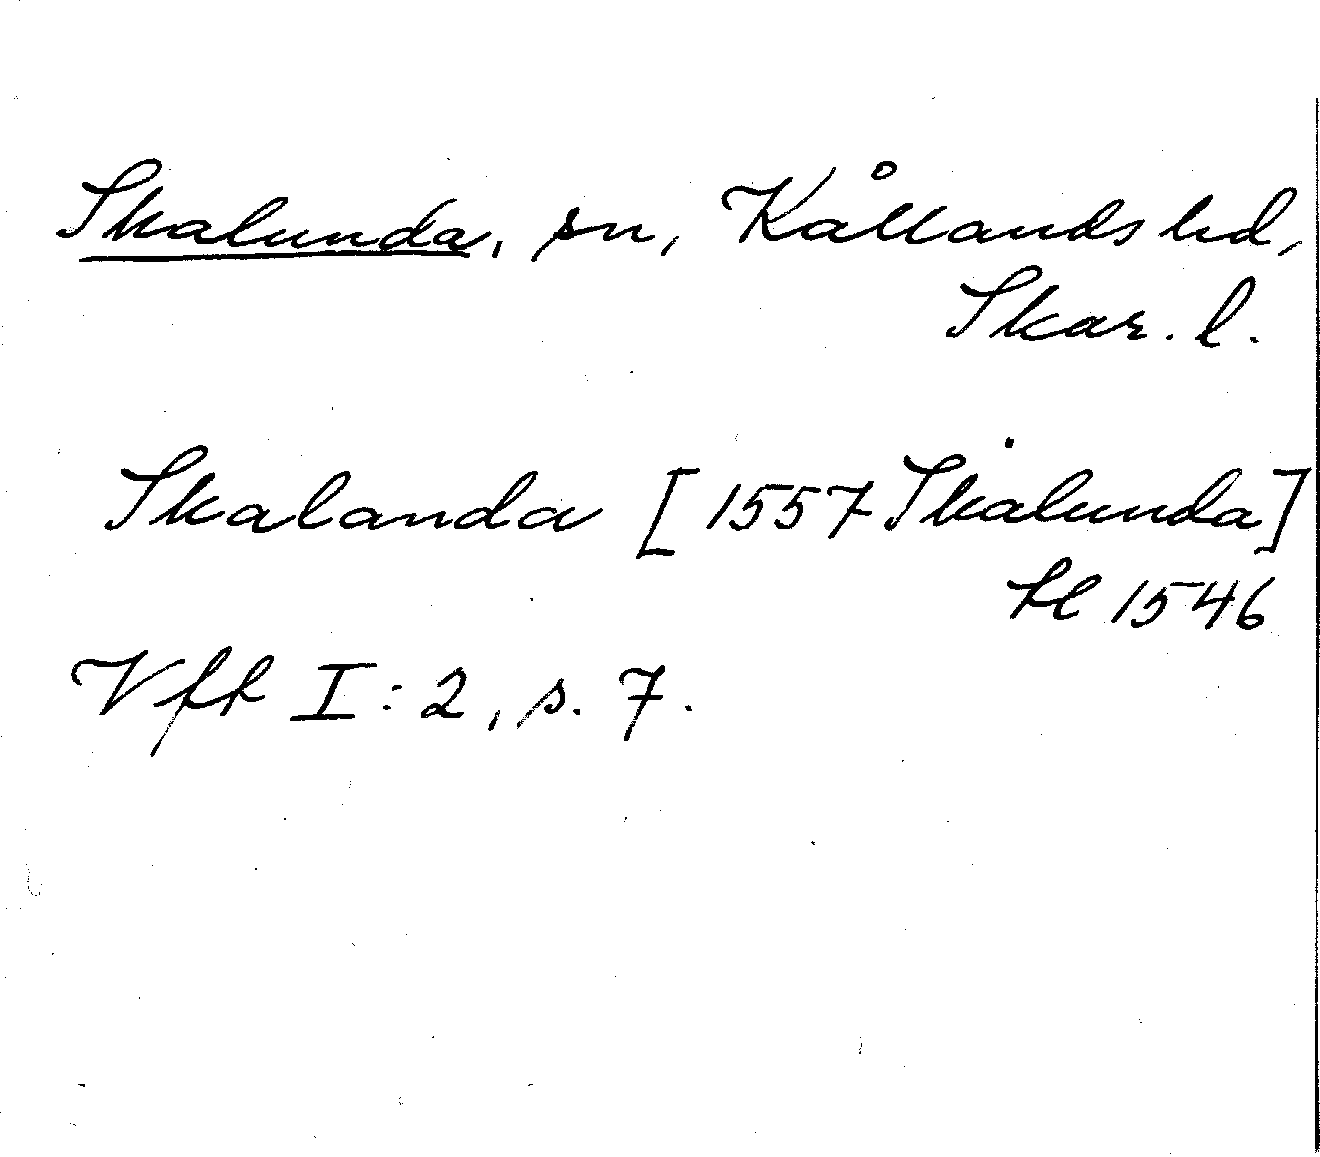 Skalunda, sn, Kållands hd,
Skar. l.
Skalanda [1557 Skalunda]
hl 1546
Vfk I:2, s. 7.